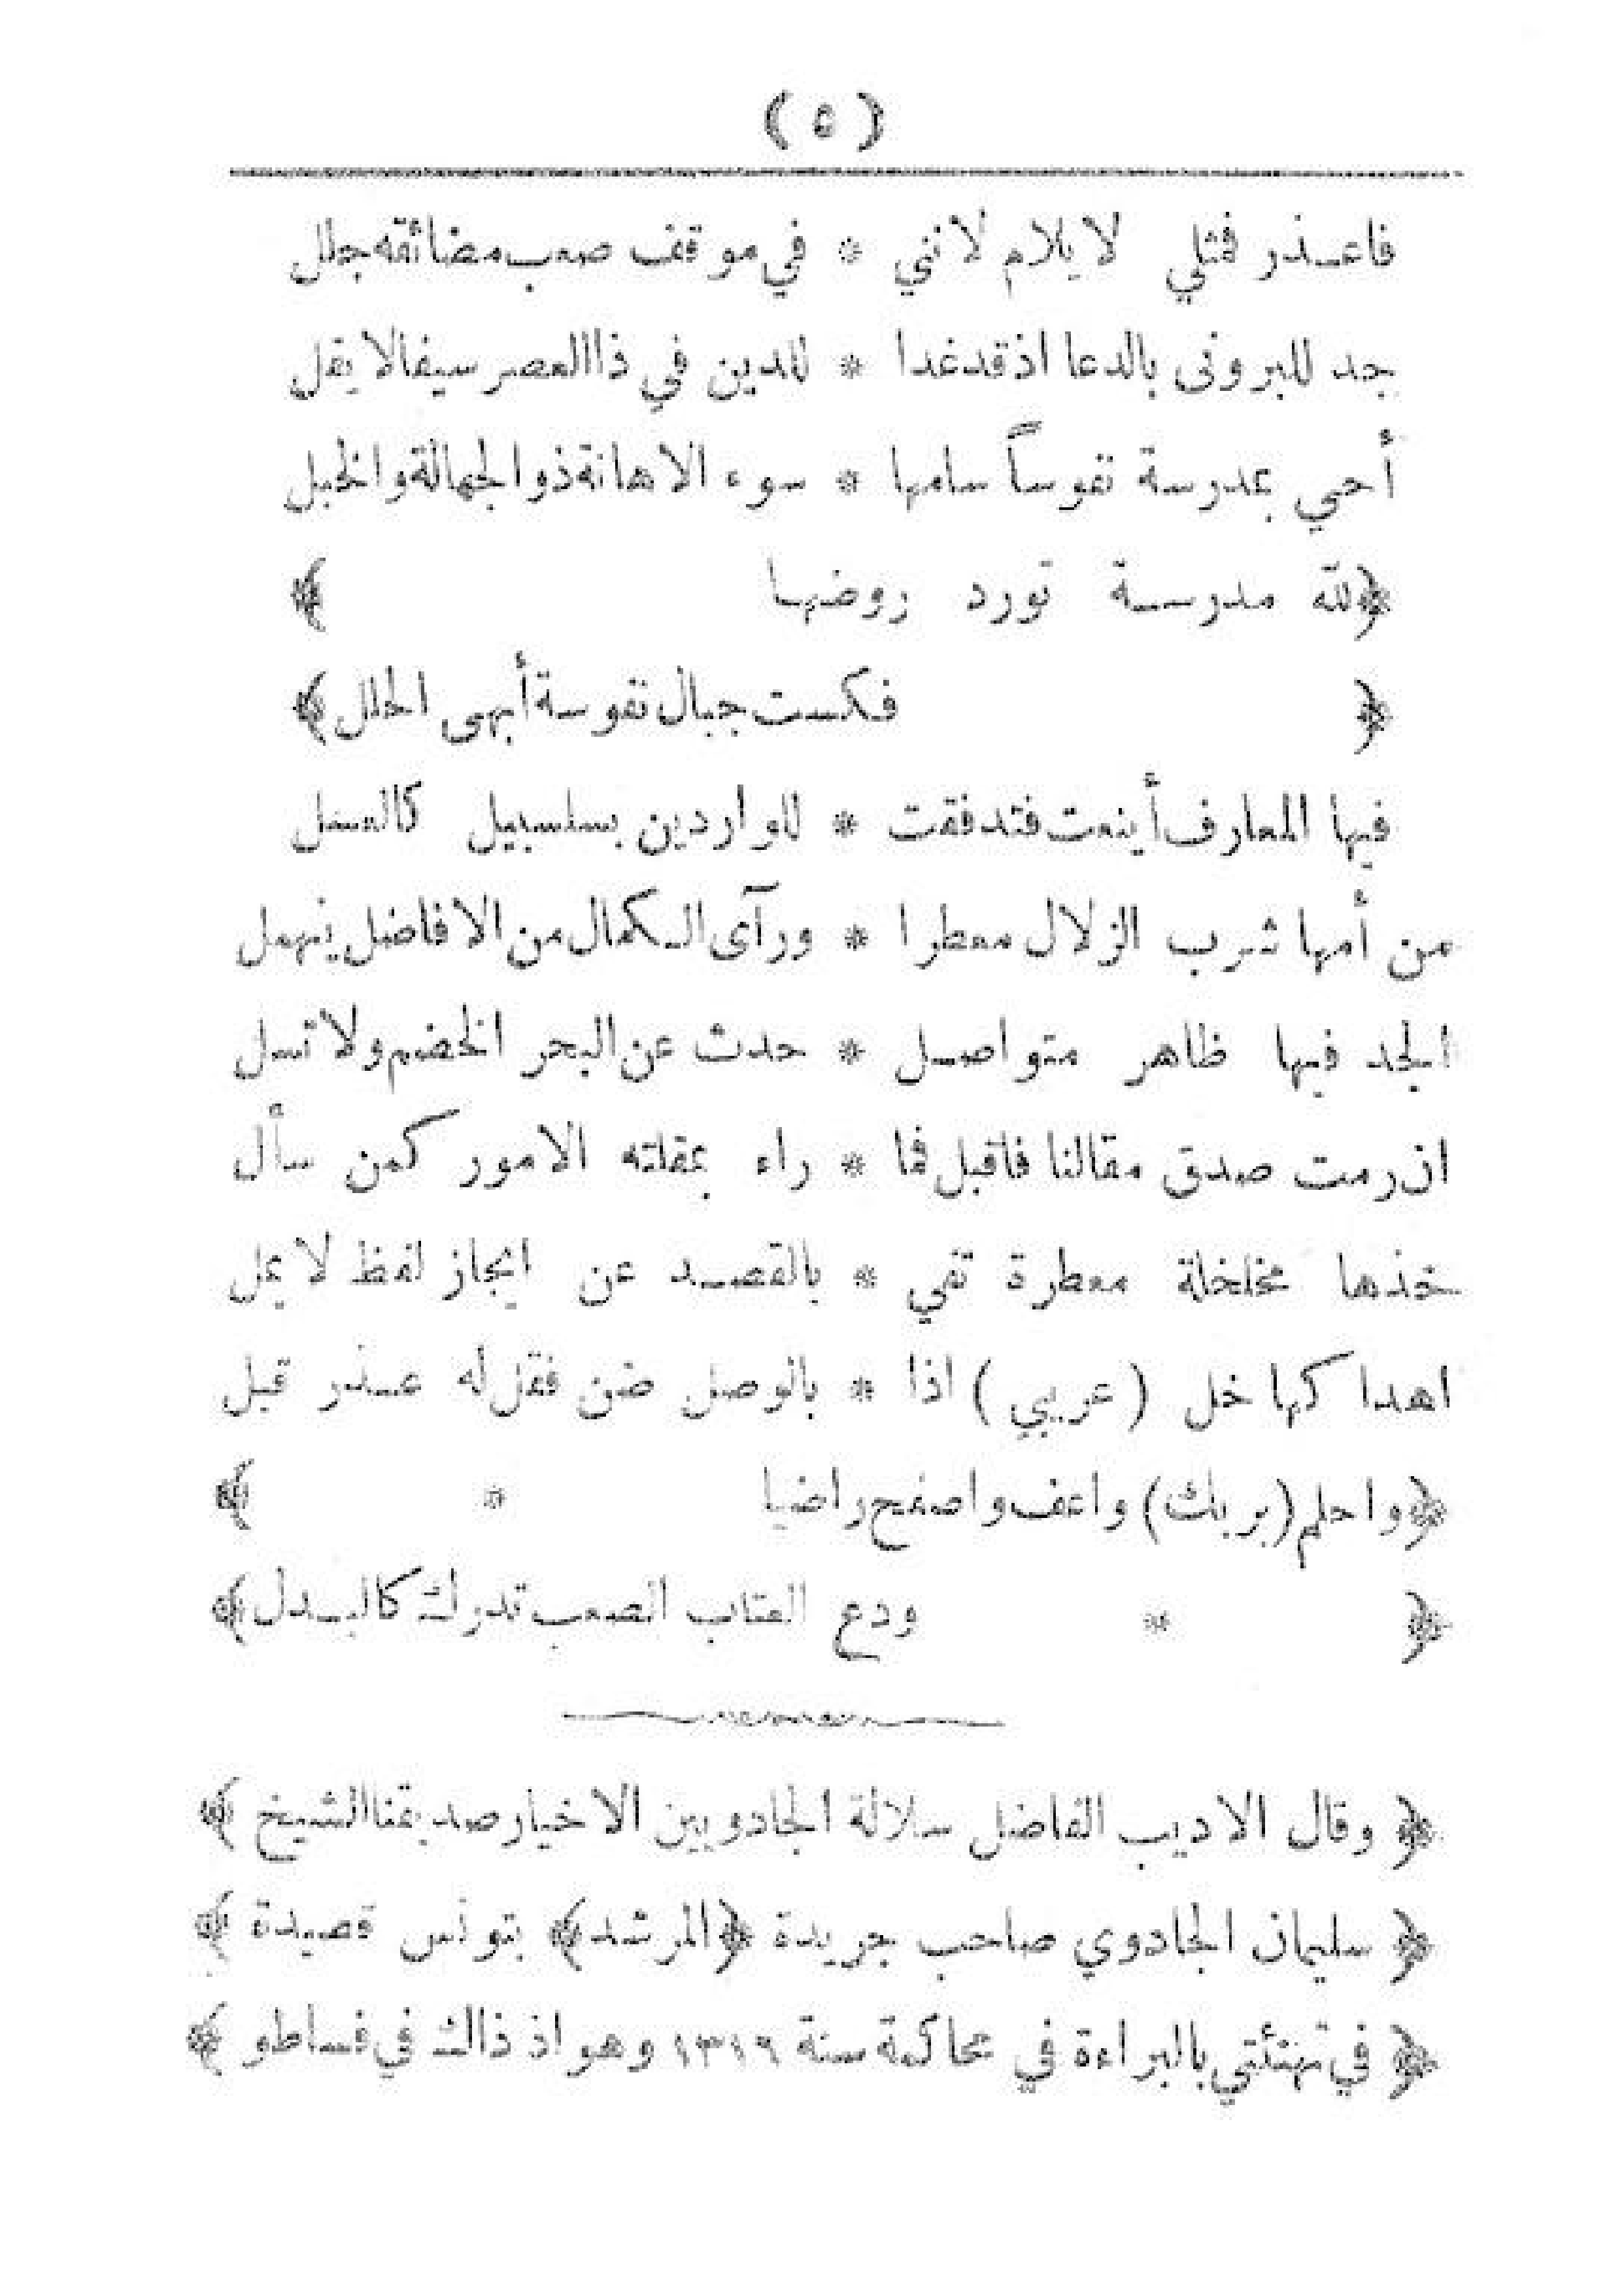 ( ٥ )
فاعذر فمثلي لا يلام لانني * في موقف صعب مضائقه جلل
جد للبرونى بالدعا اذ قد غدا * للدين في ذا العصر سيفا لا يفل
أحي بمدرسة نفوساً سامها * سوء الاهانة ذو الجهالة والخبل
﴿لله مدرسة تورد روضها ﴾
﴿ فكست جبال نفوسة أبهى الحلل﴾
فيها المعارف أينعت فتدفقت * للواردين بسلسبيل كالعسل
من أمها شرب الزلال معطرا * ورآى الكمال من الافاضل ينهمل
الجد فيها ظاهر متواصل * حدث عن البحر الخضم ولا تسل
ان رمت صدق مقالنا فاقبل فما * راء بمقلته الامور كمن سأل
خذها مخلخلة معطرة تفي * بالقصد عن ايجاز لفظ لا يمل
اهداكها خل (عربي) اذا * بالوصل ضن فقل له عذر قبل
﴿واحلم (بربك) واعف واصفح راضيا * ﴾
﴿ * ودع العتاب الصعب تدرك كالبدل﴾
﴿ وقال الاديب الفاضل سلالة الجادويين الاخيار صديقنا الشيخ ﴾
﴿ سليمان الجادوي صاحب جريدة ﴿المرشد﴾ بتونس قصيدة ﴾
﴿ في تهنئتي بالبراءة في محاكمة سنة ١٣١٩ وهو اذ ذاك في فساطو ﴾